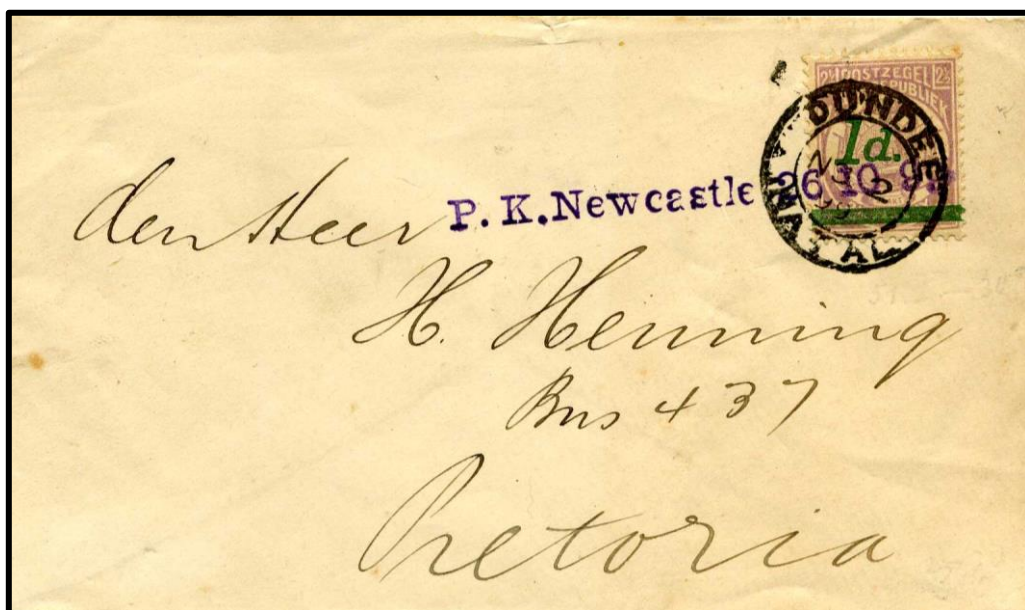 2½ POSTZEGEL 2½
REPUBLIEK
1d.
DUNDEE
NATAL
P. K. Newcastle 26 10 9
den Heer
H. Henning
Bus 437
Pretoria